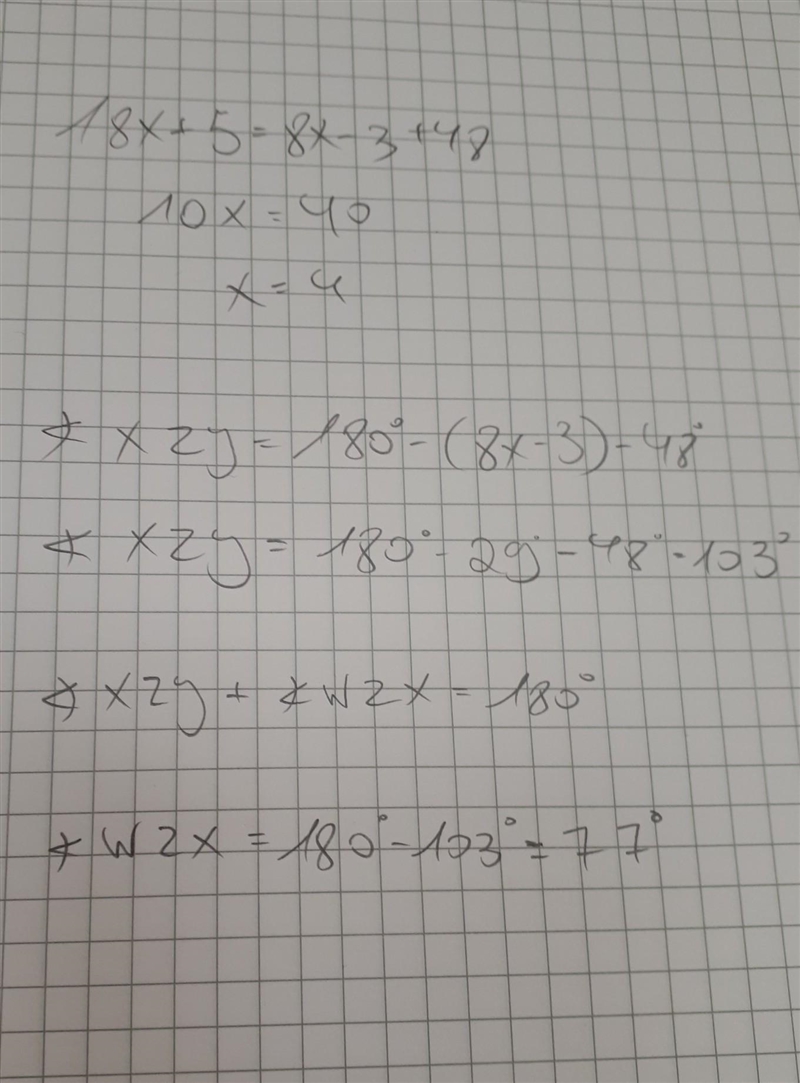 18x+5=8x-3+48
10x=40
x=4
∢ xzy=180°-(8x-3)-48°
∢ xzy=180°-29°-48°-103°
∢ xzy+∢wzx=180°
∢ wzx=180°-103°=77°